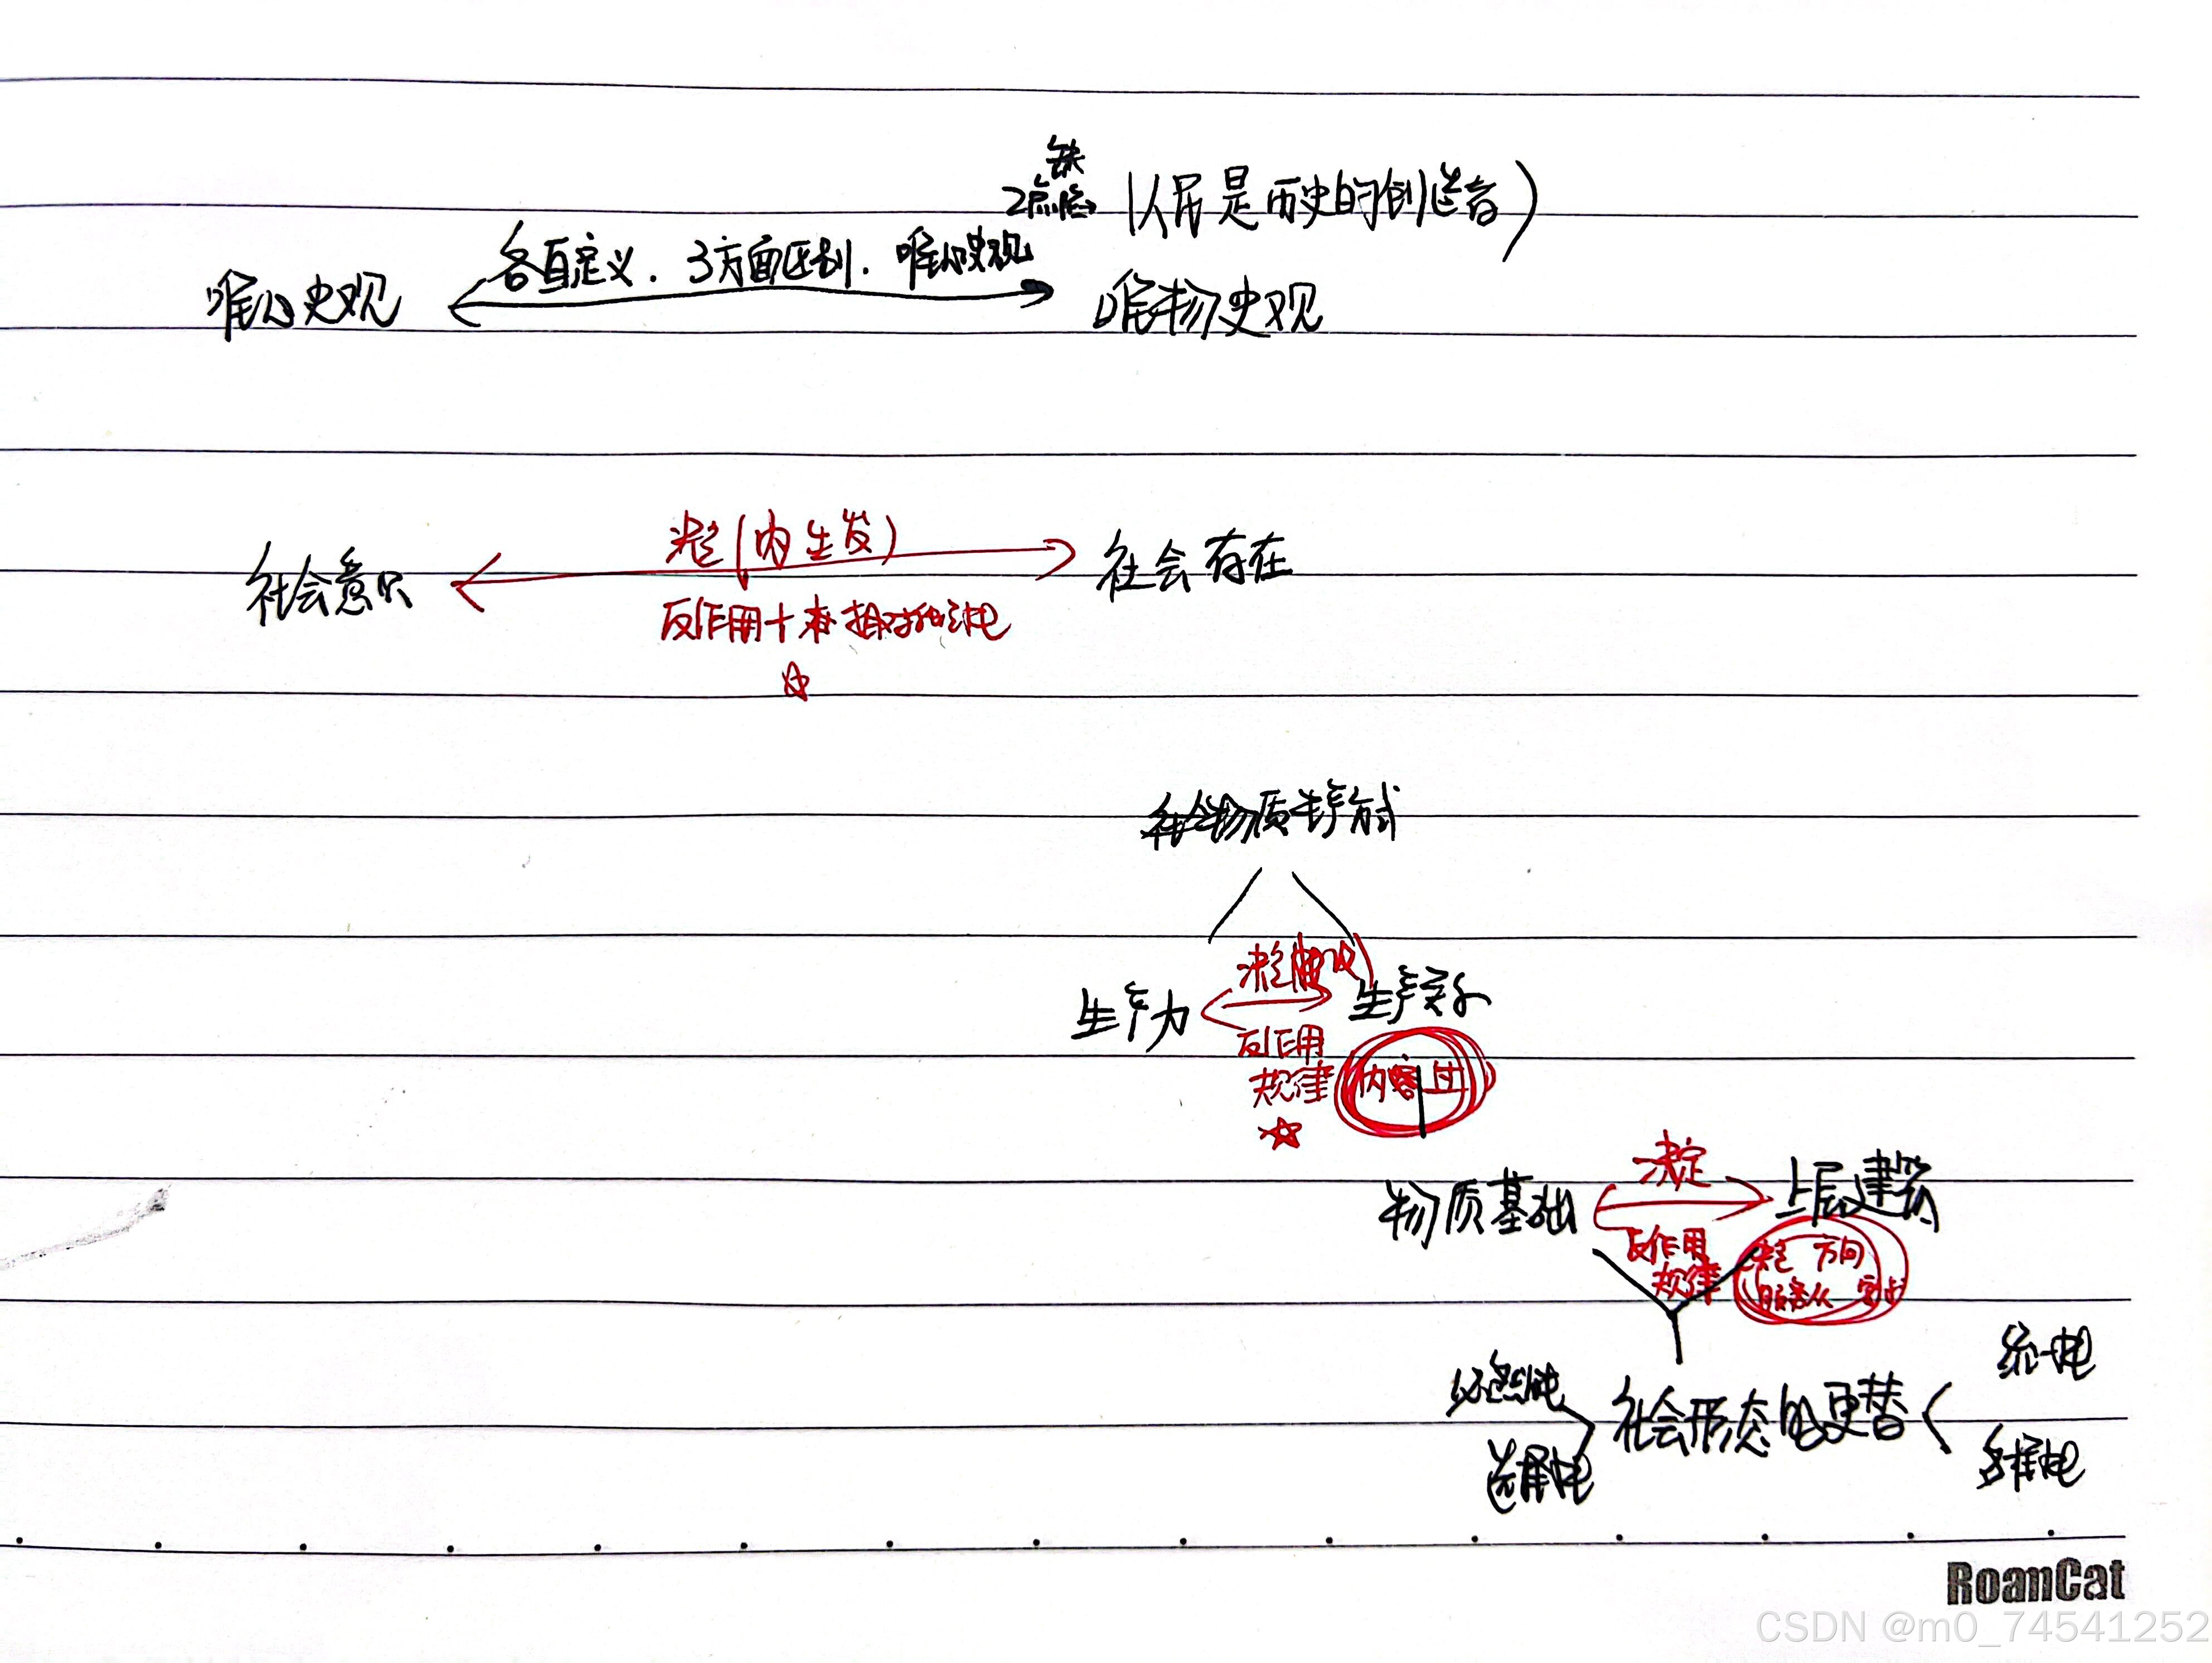 缺
2点
(人民是历史的创造者)
各自定义. 3方面区别. 唯心史观
唯心史观
唯物史观
决定(内生发)
社会意识
社会存在
反作用+相对独立性
社会物质生产方式
决定
生产力
生产关系
反作用
规律
内容
决定
物质基础
上层建筑
反作用
规律
决定 方向
统一性
必然性
社会形态的更替
选择性
多样性
RoanCat
CSDN @m0_74541252